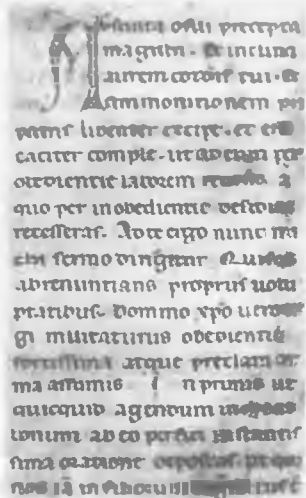 Ausculta o fili precepta
magistri. et inclina
aurem cordis tui. &
ammonitionem pii
patris libenter excipe. et effi
caciter comple. ut ad eum per
obedientie laborem redeas a
quo per inobedientie desidiam
recesseras. Ad te ergo nunc mi
chi sermo dirigitur Quisquis
abrenuntians propriis uolu
ptatibus. domino xpo uero re
gi militaturus obedientie
fortissima atque preclara ar
ma assumis In primis ut
quicquid agendum inchoas
bonum ab eo perfici instantis
sima oratione deposcas. ut qui
nos iā in filiorum